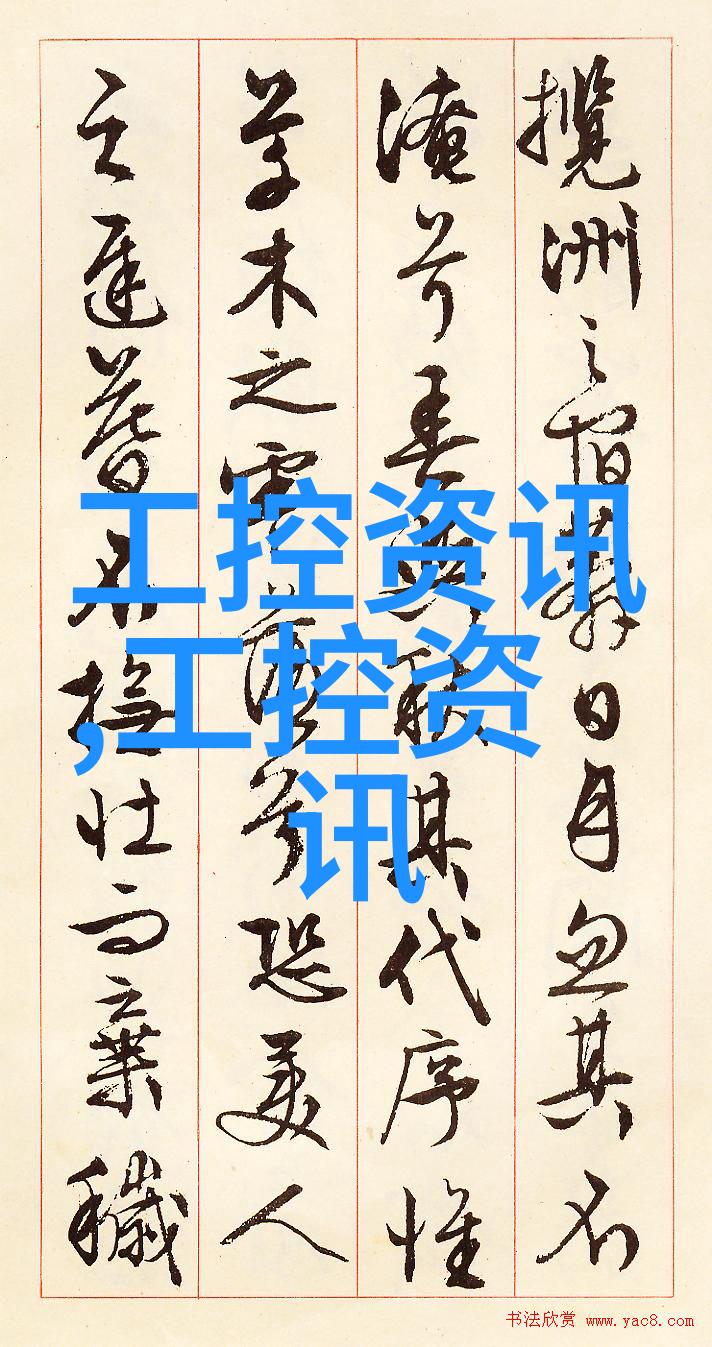 攬洲之宿莽日月忽其不
淹兮春與秋其代序惟
草木之零落兮恐美人
之遲暮不撫壯而棄穢
工控资讯
,工控资
讯
书法欣赏 www.yac8.com